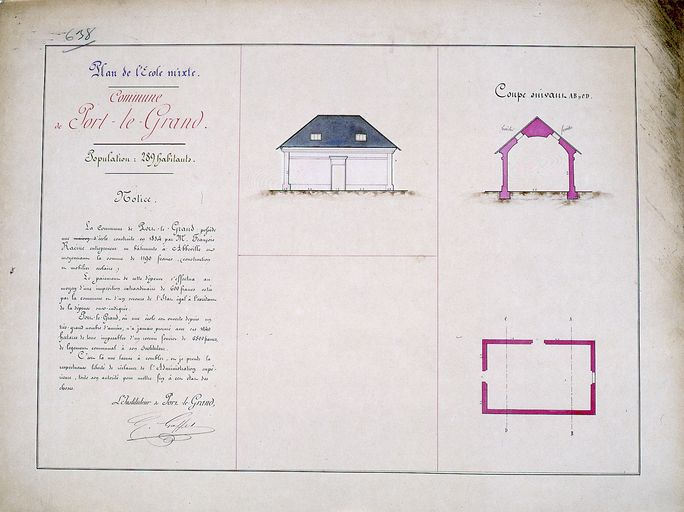 638
Plan de l'Ecole mixte.
Commune
de Port-le-Grand.
Population : 289 habitants.
Notice.
La Commune de Port-le-Grand possède
une maison d'école construite en 1854 par M. François
Racine entrepreneur en bâtiments à Abbeville
moyennant la somme de 1190 francs (construction
et mobilier scolaire)
Le paiement de cette dépense s'effectua au
moyen d'une imposition extraordinaire de 600 francs votée
par la commune et d'un secours de l'Etat égal à l'excédent
de la dépense sous-indiquée.
Port-le-Grand, où une école est ouverte depuis un
très grand nombre d'années, n'a jamais procuré avec ses
hectares de terre imposables d'un revenu foncier de 6500 francs,
de logement communal à son Instituteur.
C'est là une lacune à combler, et je prends la
respectueuse liberté de réclamer de l'Administration supé-
rieure, toute son autorité pour mettre fin à cet état des
choses.
L'Instituteur de Port le Grand,
Coupe suivant AB, CD.
C A
D B